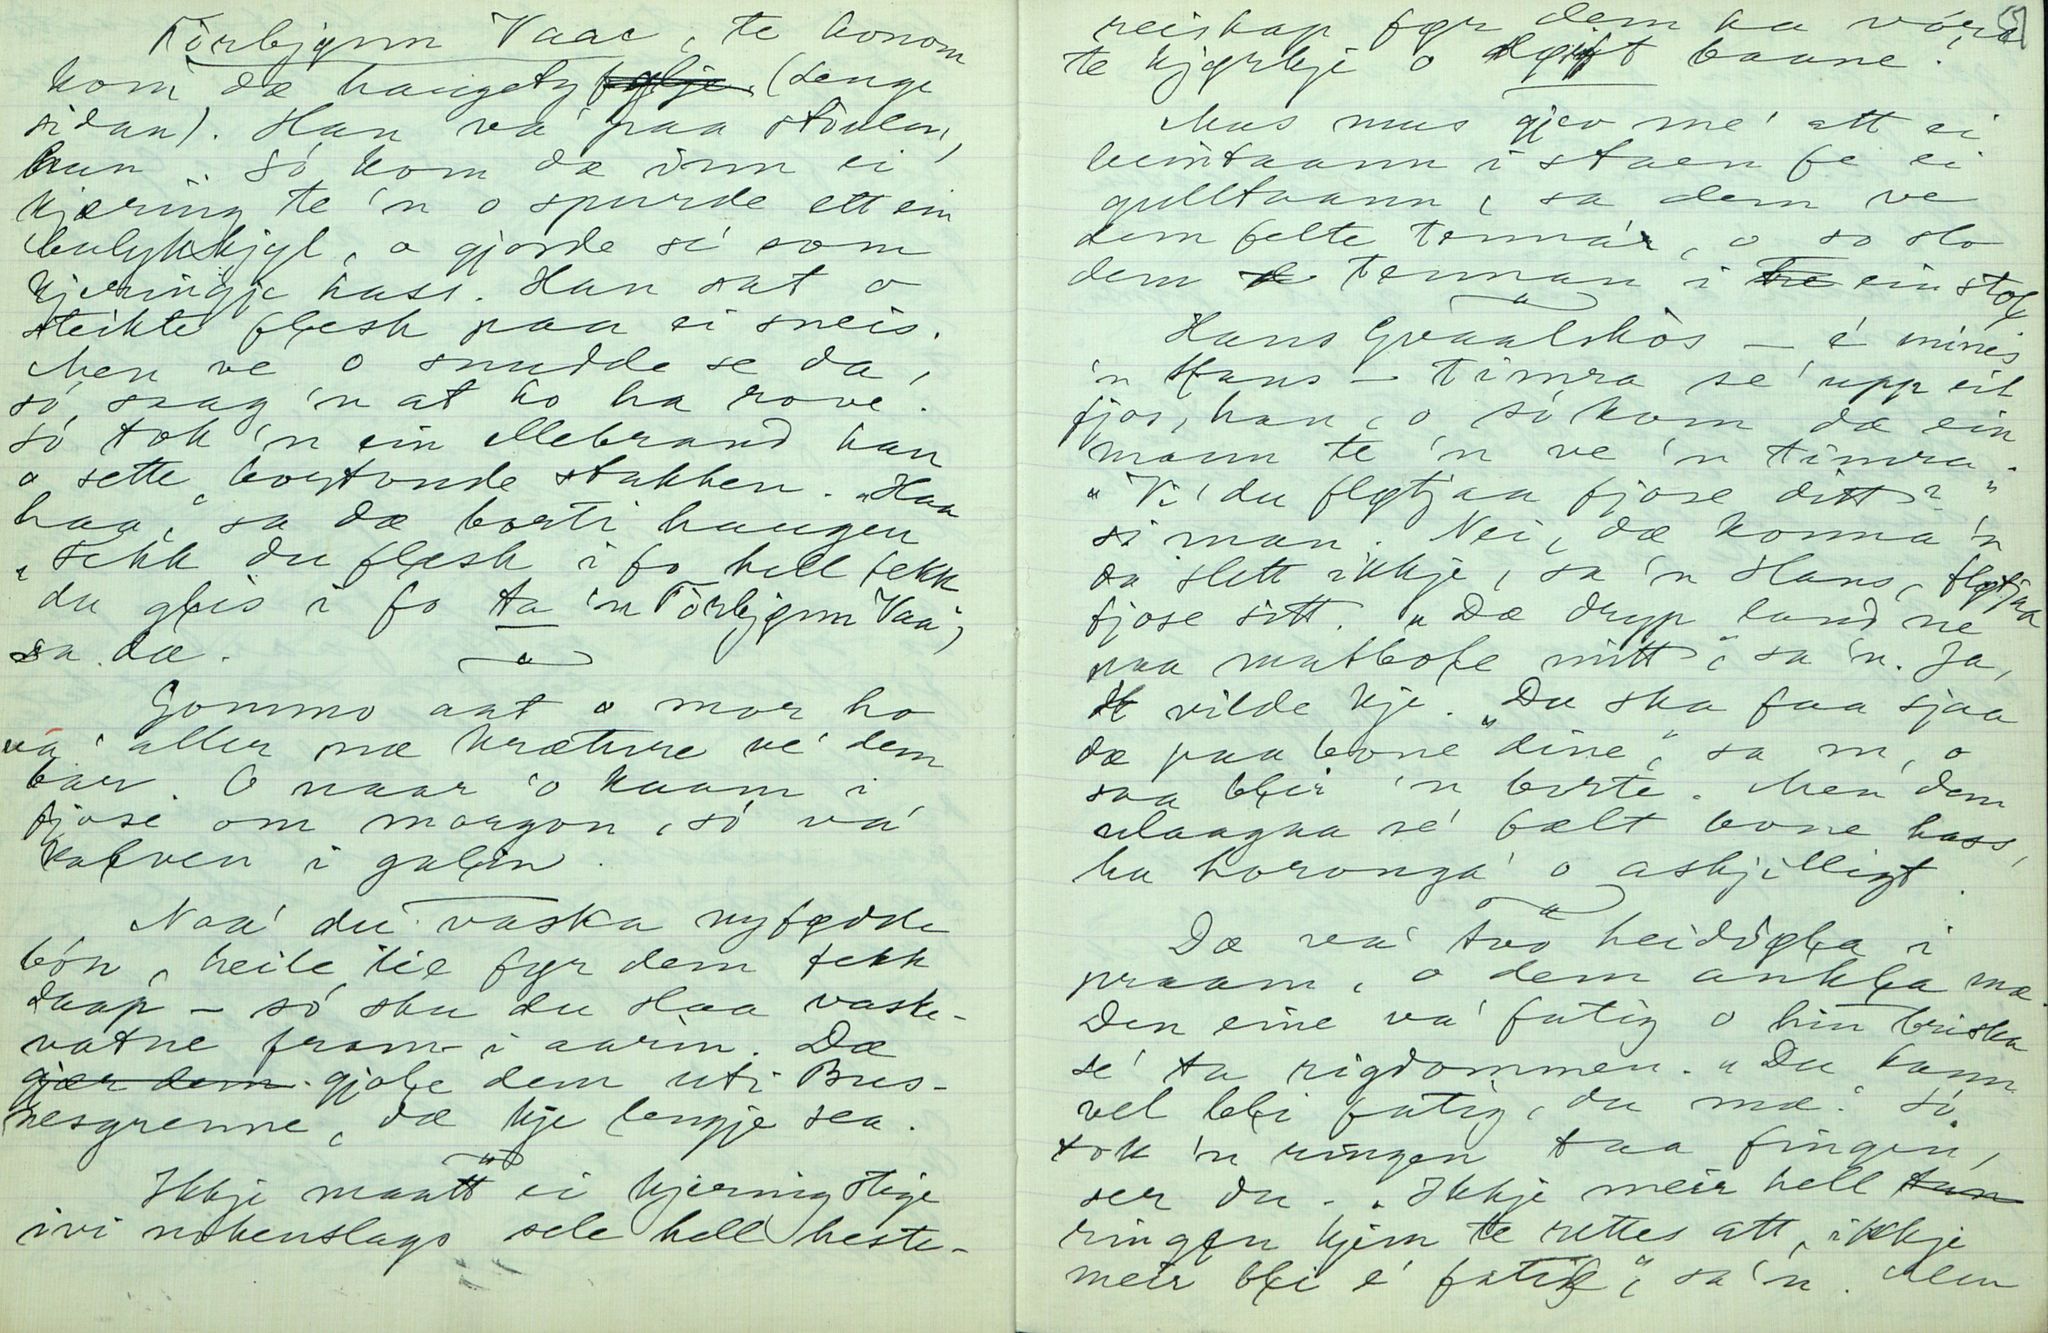 Tørbjønn Vaae, te honom
kom dæ haugety følje (lenge
sidan). Han va' paa støulen,
han. Só kom dæ inn ei
kjæring te 'n o spurde ett ein
bulykskjyl, o gjorde sé som
kjeringje hass. Han sat o
steikte flesk paa ei sneis.
Men ve o snudde se da,
só saag 'n at ho ha rove.
Só tok 'n ein ellebrand han
o sette bortonde stakken. "Haa
haa," sa dæ borti haugen
"fekk du flesk i fo hell fekk
du gleis i fo ta 'n Tørbjønn Vaa",
sa dæ.
Gommo aat o mor ho
va' aller mæ krætture vé dem
bar. O naar 'o kaam i
fjøse om morgon, só va'
kalven i galin.
Naa' du vaska nyfødde
bón, heile tie før dem fekk
daap - só sku du slaa vaske-
vatne fram i aarin. Dæ
gjær dem gjole dem uti Bus-
nesgrenne, dæ kje lengje sea.
Ikkje maatt ei kjering stige
ivi nokenslags sele hell heste-
reiskap før dem ha vóre
te kjørkje o døift baane.
Mus mus gjev mé att ei
beintaann i staen fe ei
gulltaann, sa dem ve
dem felte tennar, o so slo
dem tennan i ein stol
Hans Gvaalshos - é minnes
'n Hans - timra sé upp eit
fjos, han, o só kom dæ ein
mann te 'n ve 'n timra.
"Vi' du fløtjaa fjose ditt?"
si man. Nei, dæ konna 'n
da slett ikkje, sa 'n Hans, fløtjaa
fjose sitt. "Dæ dryp land ne
paa matbole mitt", sa 'n. Ja,
vilde kje. "Du ska faa sjaa
dæ paa bone dine", sa 'n, o
saa blir 'n borte. Men dem
ulaagaa sé bælt bone hass,
ha horonga' o askjilligt.
Dæ va' två heidøla i
praam, o dem ankla mæ.
Den eine va' fatig o hin briska
sé ta rigdommen. "Du kann
vel bli fatig, du mæ." Só
tok 'n ringen taa fingen,
ser du. "Ikkje meir hell
ringen kjem te rettes att, ikkje
meir bli é fatig", sa 'n. Men